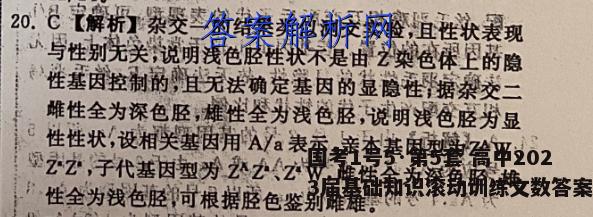 20. C【解析】杂交一的结果类似测交实验,且性状表现
答案解析网
与性别无关,说明浅色胫性状不是由 Z 染色体上的隐
性基因控制的,且无法确定基因的显隐性;据杂交二
雌性全为深色胫,雄性全为浅色胫,说明浅色胫为显
性性状,设相关基因用 A/a 表示,亲本基因型为
国考1号5·第5套 高中202
子代基因型为
3届基础知识滚动训练文数答案
性全为浅色胫,可根据胫色鉴别雌雄。